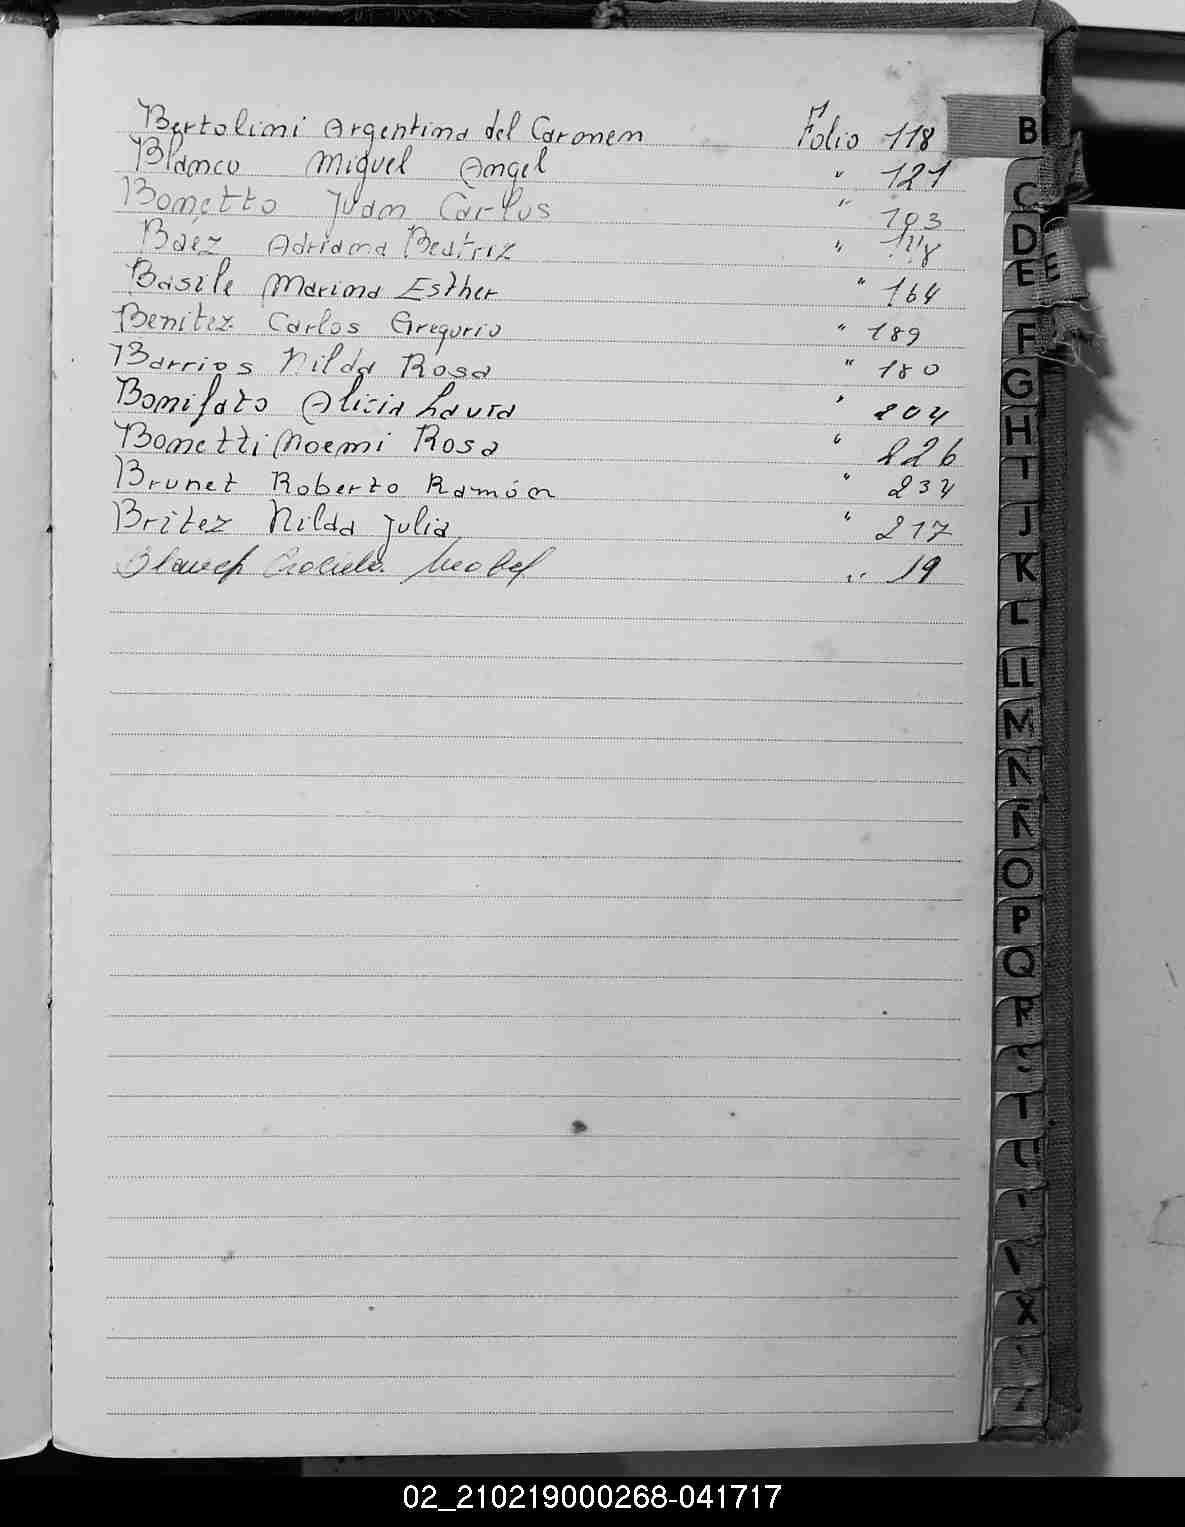 Bertolini Argentina del Caronem Folio 118
Blanco Miguel Angel " 121
Bonetto Juan Carlos " 103
Baez Adriana Beatriz "
Basile Marina Esther " 164
Benitez Carlos Gregorio " 189
Barrios Nilda Rosa " 180
Bonifato Alicia Laura " 204
Bonetti Noemi Rosa " 226
Brunet Roberto Ramón " 234
Britez Nilda Julia " 217
" 19
B
C
D
E E
F
G
H
I
J
K
L
LL
M
N
Ñ
O
P
Q
R
T
X
02_210219000268-041717